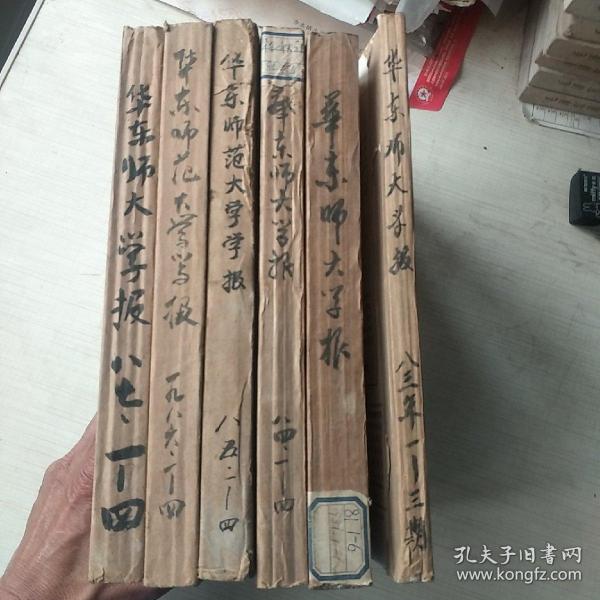 华东师大学报
八七.一一四
华东师范大学学报
一九八六.一一四
华东师范大学学报
八五.一一四
華东师大学报
八四.一一四
華东师大学报
81-6
华东师大学报
八三年一一三期
孔夫子旧书网
www.kongfz.com